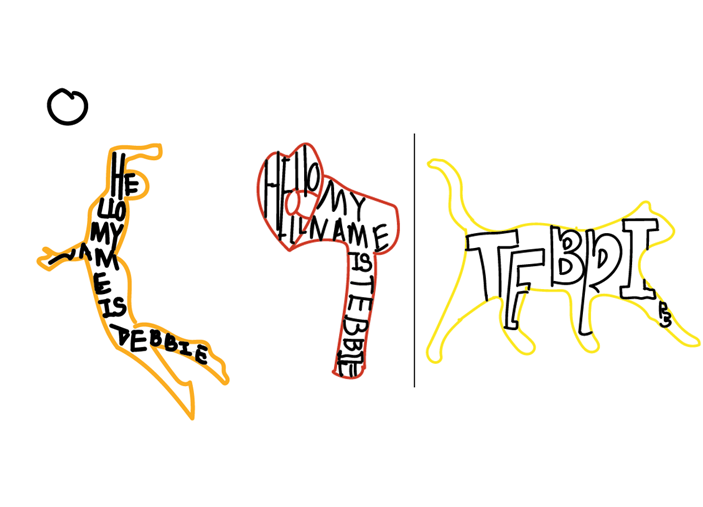 HE
LLO
MY
NAM
E
IS
DEBBIE
HELLO
MY
NAME
IS
T
E
B
B
IE
TFBDI